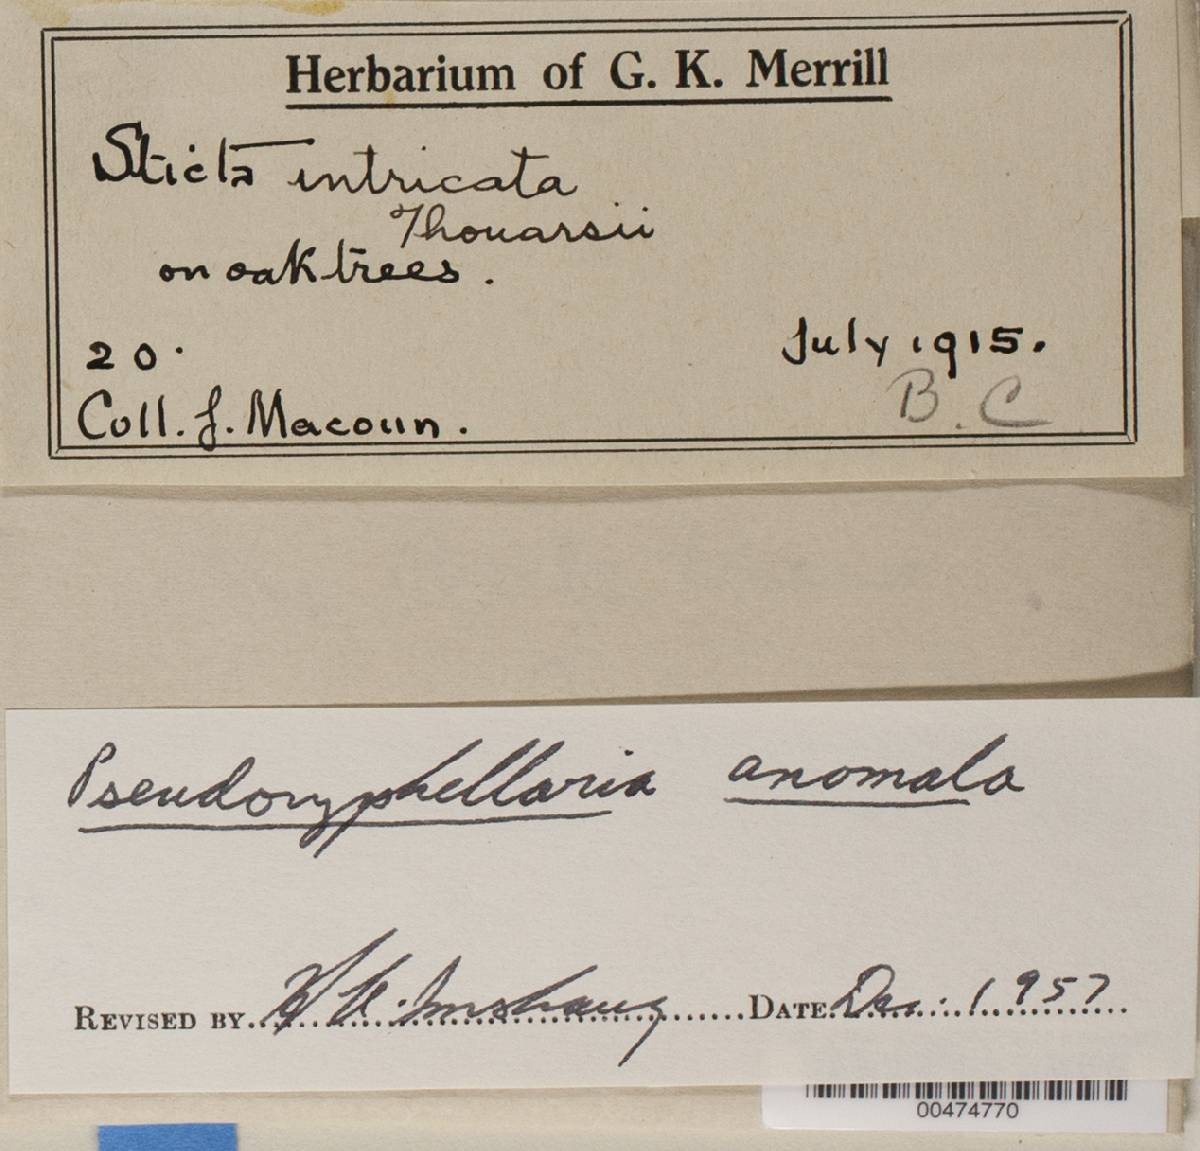 Herbarium of G. K. Merrill
Sticta intricata
Thouarsii
on oak trees.
20.
July 1915.
B.C
Coll. J. Macoun.
Pseudocyphellaria anomala
REVISED BY H. A. Imshaug DATE Dec. 1957
00474770